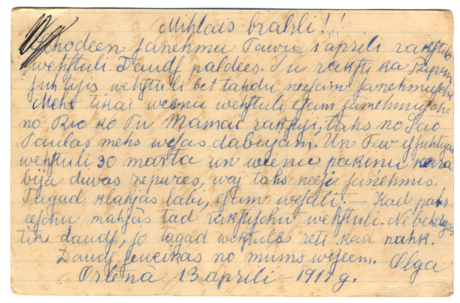 Mihļais brahli!!
Schodeen saņehmu Tawu 1 aprilī rakstito
wehstuli Daudz paldees. Tu raksti ka
suhtijis wehstuli bet tahdu neesam saņehmuschi
Mehs tikai weenu wehstuli esam saņehmuschi
no Rio ko Tu Mamai rakstiji, tahs no Sao
Paulas mehs wisas dabujam. Un Tew issuhtiju
wehstuli 30 martā un weenu pakiņu kurā
bija diwas zepures, waj tahs neesi saņehmis.
Tagad klahjas labi, esam weseli. — Kad pahr-
eeschu mahjās tad rakstischu wehstuli. Nebehdajees
tik daudz, jo tagad wehstules reti kad nahk.
Daudz sweizeenas no mums wiseem. Olga
Orlena 13 aprilī — 191 g.